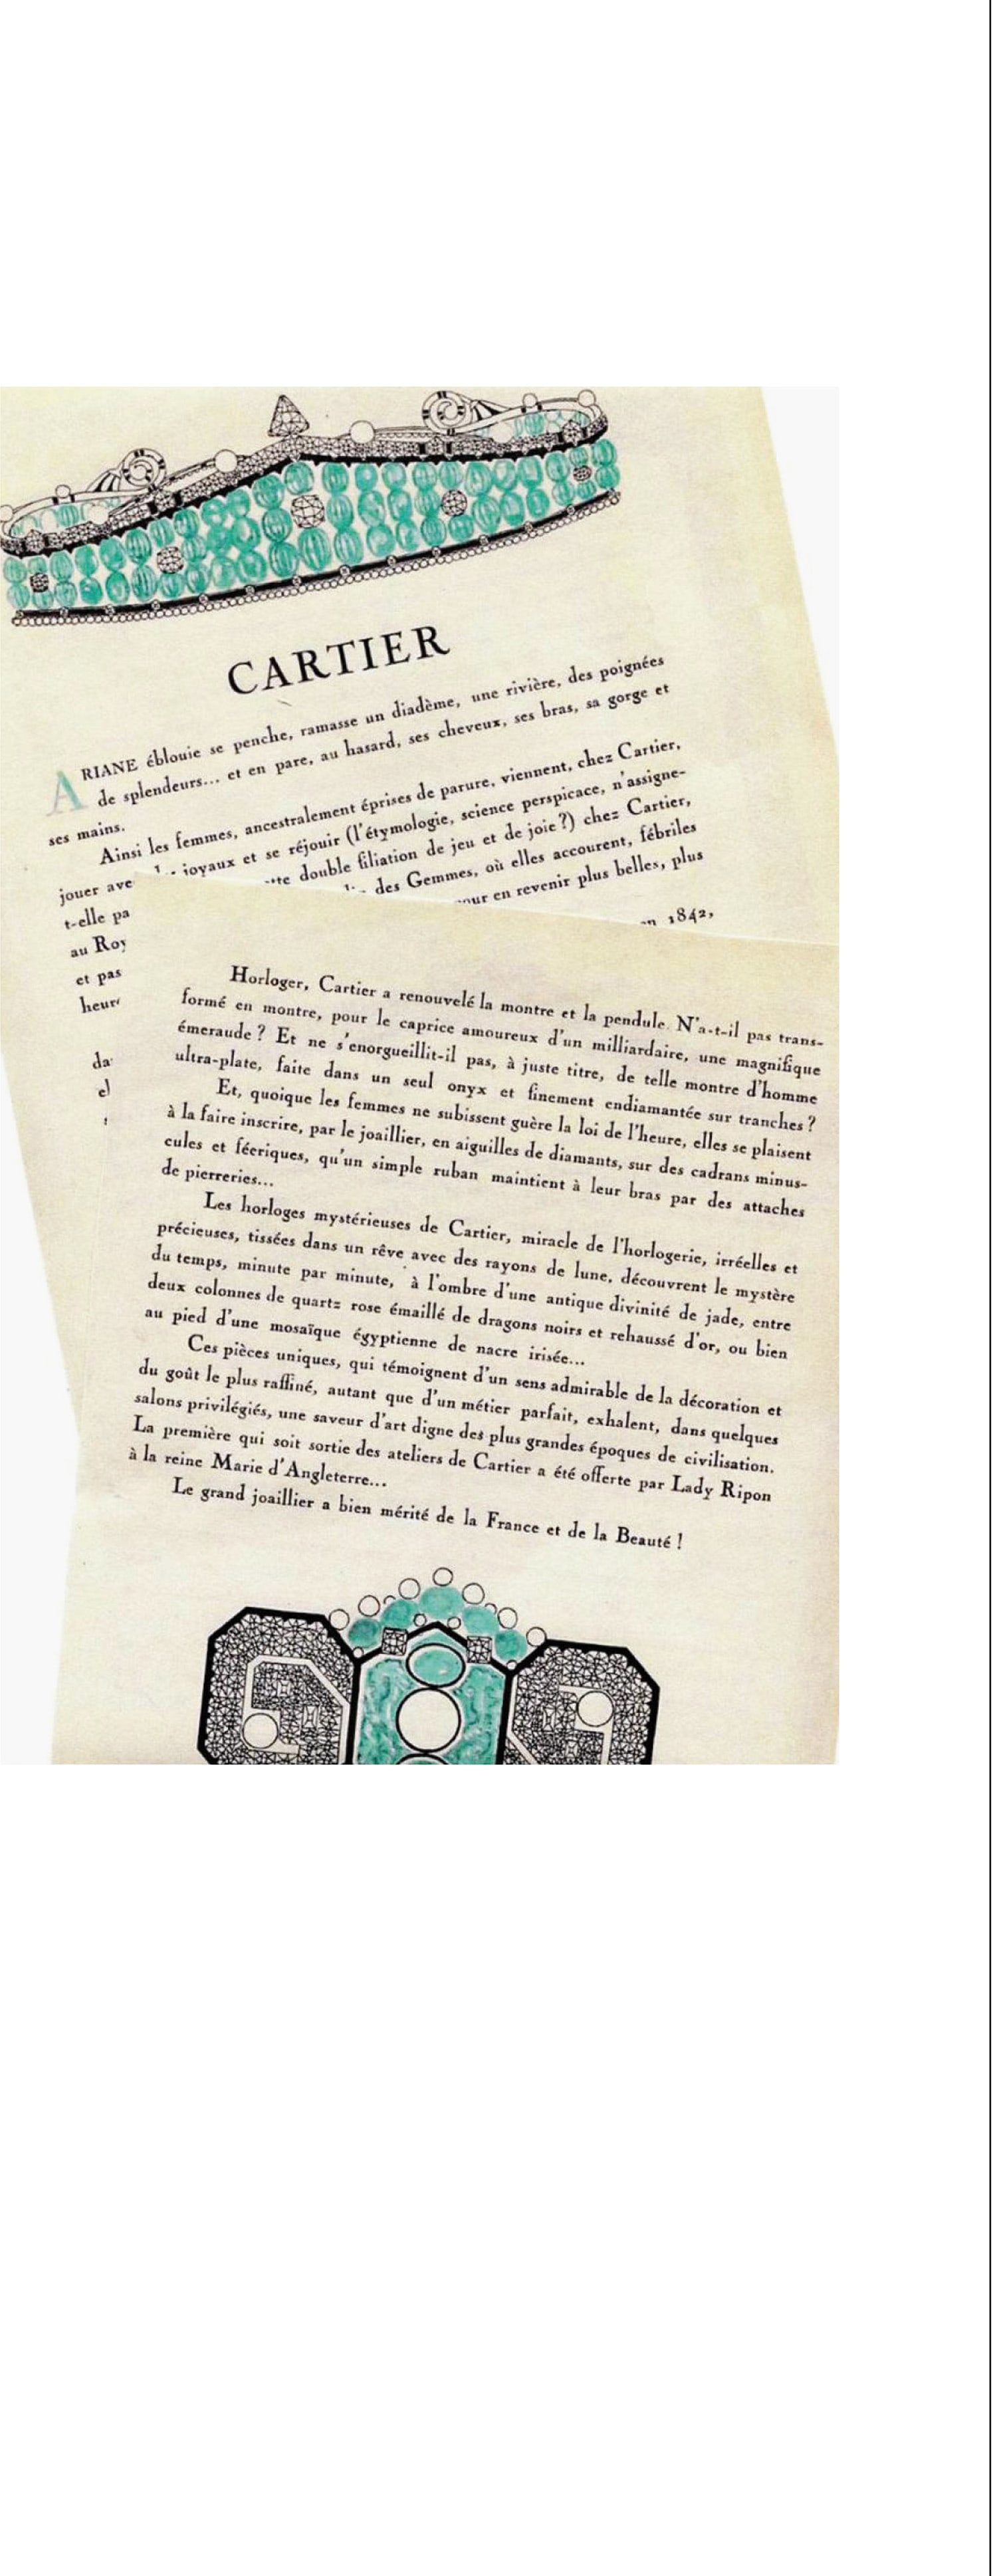 CARTIER
ARIANE éblouie se penche, ramasse un diadème, une rivière, des poignées
de splendeurs... et en pare, au hasard, ses cheveux, ses bras, sa gorge et
ses mains.
Ainsi les femmes, ancestralement éprises de parure, viennent, chez Cartier,
jouer ave joyaux et se réjouir (l'étymologie, science perspicace, n'assigne-
t-elle pa double filiation de jeu et de joie?) chez Cartier,
au Roy des Gemmes, où elles accourent, fébriles
et pas en revenir plus belles, plus
heur
1842,
da
el
Horloger, Cartier a renouvelé la montre et la pendule. N'a-t-il pas trans-
formé en montre, pour le caprice amoureux d'un milliardaire, une magnifique
émeraude ? Et ne s'enorgueillit-il pas, à juste titre, de telle montre d'homme
ultra-plate, faite dans un seul onyx et finement endiamantée sur tranches ?
Et, quoique les femmes ne subissent guère la loi de l'heure, elles se plaisent
à la faire inscrire, par le joaillier, en aiguilles de diamants, sur des cadrans minus-
cules et féeriques, qu'un simple ruban maintient à leur bras par des attaches
de pierreries...
Les horloges mystérieuses de Cartier, miracle de l'horlogerie, irréelles et
précieuses, tissées dans un rêve avec des rayons de lune, découvrent le mystère
du temps, minute par minute, à l'ombre d'une antique divinité de jade, entre
deux colonnes de quartz rose émaillé de dragons noirs et rehaussé d'or, ou bien
au pied d'une mosaïque égyptienne de nacre irisée...
Ces pièces uniques, qui témoignent d'un sens admirable de la décoration et
du goût le plus raffiné, autant que d'un métier parfait, exhalent, dans quelques
salons privilégiés, une saveur d'art digne des plus grandes époques de civilisation.
La première qui soit sortie des ateliers de Cartier a été offerte par Lady Ripon
à la reine Marie d'Angleterre...
Le grand joaillier a bien mérité de la France et de la Beauté !